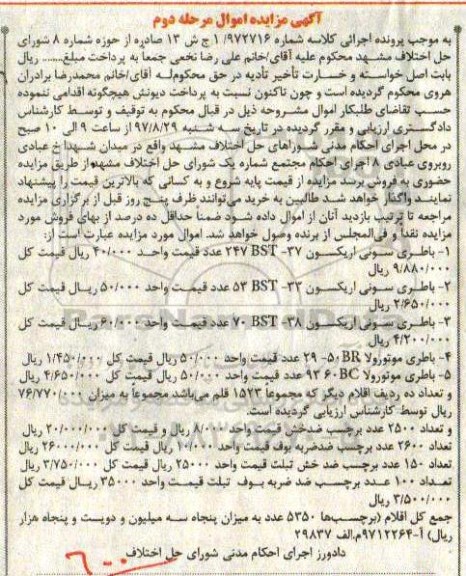 آگهی مزایده اموال مرحله دوم
به موجب پرونده اجرائی کلاسه شماره ۹۷۲۷۱۶/ ۱ ج ش ۱۳ صادره از حوزه شماره ۸ شورای
حل اختلاف مشهد محکوم علیه آقای/خانم علی رضا نخعی جمعاً به پرداخت مبلغ........ ریال
بابت اصل خواسته و خسارت تأخیر تأدیه در حق محکوم‌له آقای/خانم محمدرضا برادران
هروی محکوم گردیده است و چون تاکنون نسبت به پرداخت دیونش هیچگونه اقدامی ننموده
حسب تقاضای طلبکار اموال مشروحه ذیل در قبال محکوم به توقیف و توسط کارشناس
دادگستری ارزیابی و مقرر گردیده در تاریخ سه شنبه ۹۷/۸/۲۹ از ساعت ۹ الی ۱۰ صبح
در محل اجرای احکام مدنی شوراهای حل اختلاف مشهد واقع در میدان شهدا خ عبادی
روبروی عبادی ۸ اجرای احکام مجتمع شماره یک شورای حل اختلاف مشهد از طریق مزایده
حضوری به فروش برسد مزایده از قیمت پایه شروع و به کسانی که بالاترین قیمت را پیشنهاد
نمایند واگذار خواهد شد طالبین به خرید می‌توانند ظرف پنج روز قبل از برگزاری مزایده
مراجعه تا ترتیب بازدید آنان از اموال داده شود ضمناً حداقل ده درصد از بهای فروش مورد
مزایده نقداً و فی‌المجلس از برنده وصول خواهد شد. اموال مورد مزایده عبارت است از:
۱- باطری سونی اریکسون BST -۳۷ ۲۴۷ عدد قیمت واحد ۴۰/۰۰۰ ریال قیمت کل
۹/۸۸۰/۰۰۰ ریال
۲- باطری سونی اریکسون BST -۳۳ ۵۳ عدد قیمت واحد ۵۰/۰۰۰ ریال قیمت کل
۲/۶۵۰/۰۰۰ ریال
۳- باطری سونی اریکسون BST -۳۸ ۷۰ عدد قیمت واحد ۶۰/۰۰۰ ریال قیمت کل
۴/۲۰۰/۰۰۰ ریال
۴- باطری موتورولا BR ۵۰- ۲۹ عدد قیمت واحد ۵۰/۰۰۰ ریال قیمت کل ۱/۴۵۰/۰۰۰ ریال
۵- باطری موتورولا BC ۶۰ ۹۳ عدد قیمت واحد ۵۰/۰۰۰ ریال قیمت کل ۴/۶۵۰/۰۰۰ ریال
و تعداد ده ردیف اقلام دیگر که مجموعا ۱۵۲۳ قلم می‌باشد مجموعاً به میزان ۷۶/۷۷۰/۰۰۰
ریال توسط کارشناس ارزیابی گردیده است.
و تعداد ۲۵۰۰ عدد برچسب ضدخش قیمت واحد ۸/۰۰۰ ریال و قیمت کل ۲۰/۰۰۰/۰۰۰ ریال
تعداد ۲۶۰۰ عدد برچسب ضدضربه بوف قیمت واحد ۱۰/۰۰۰ ریال قیمت کل ۲۶۰۰۰/۰۰۰ ریال
تعداد ۱۵۰ عدد برچسب ضد خش تبلت قیمت واحد ۲۵۰۰۰ ریال قیمت کل ۳/۷۵۰/۰۰۰ ریال
تعداد ۱۰۰ عدد برچسب ضد ضربه بوف تبلت قیمت واحد ۳۵۰۰۰ ریال قیمت کل
۳/۵۰۰/۰۰۰ ریال
جمع کل اقلام (برچسب‌ها ۵۳۵۰ عدد به میزان پنجاه سه میلیون و دویست و پنجاه هزار
ریال) آ-۹۷۱۲۲۶۴ م.الف ۲۹۸۳۷
دادورز اجرای احکام مدنی شورای حل اختلاف